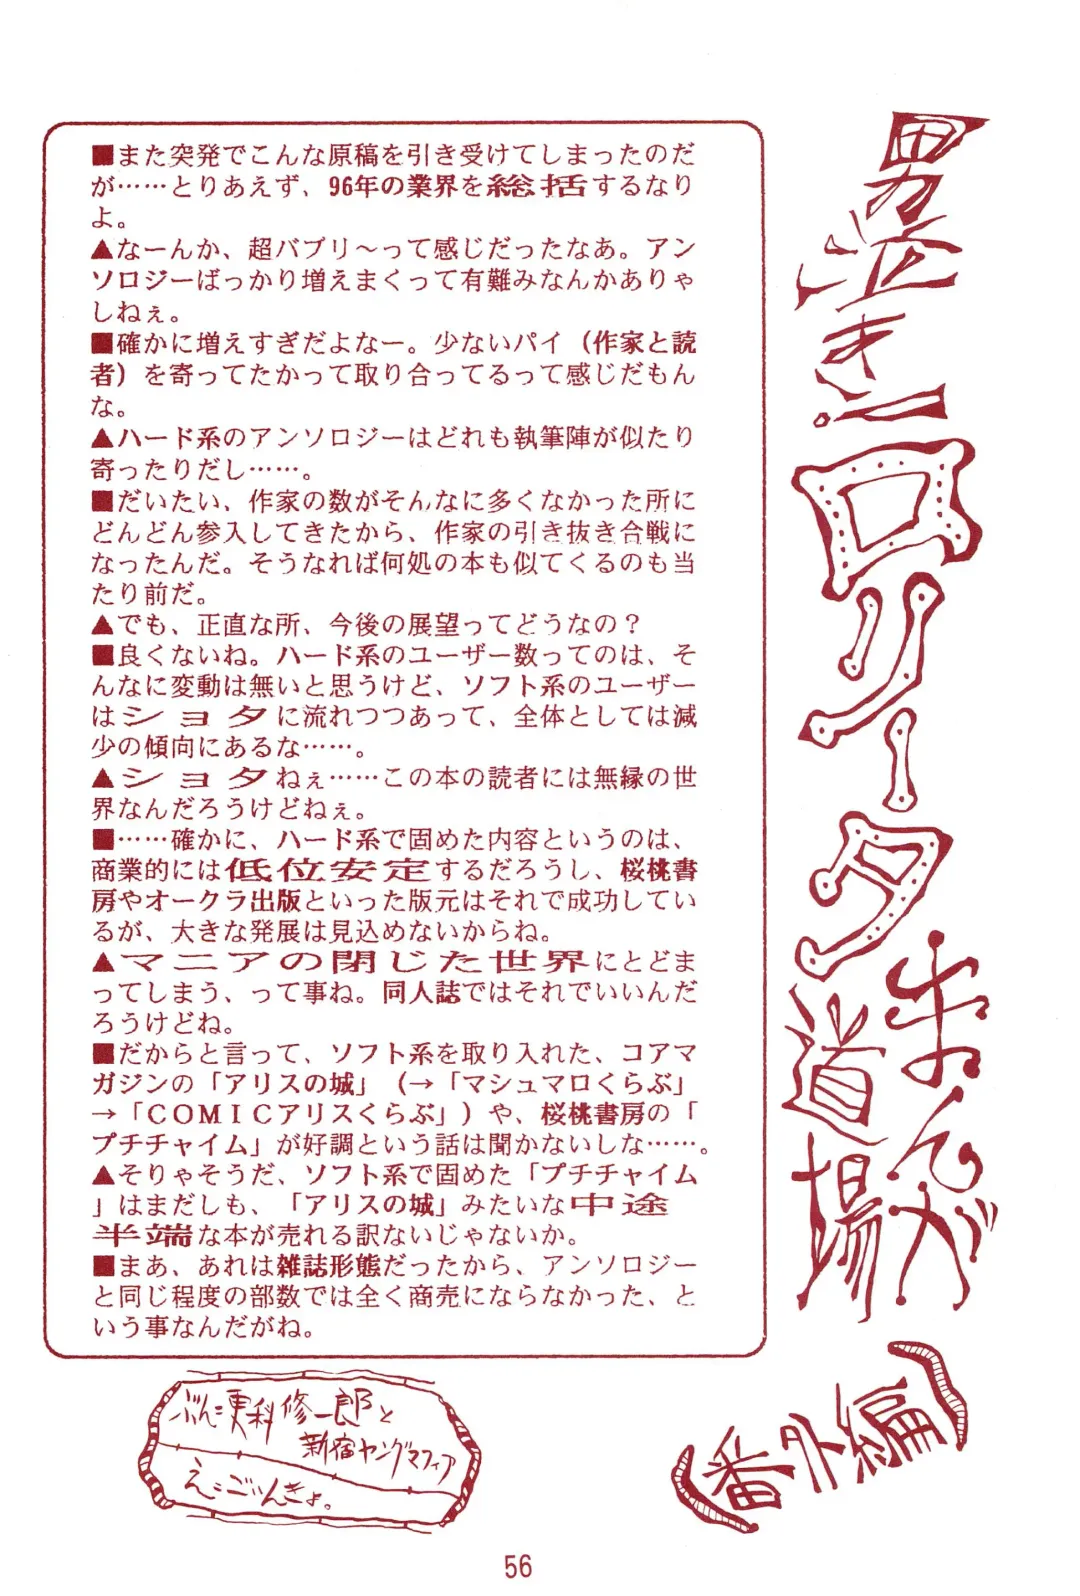 男泣きロリータ
まんが道場
（番外編）
■また突発でこんな原稿を引き受けてしまったのだ
が……とりあえず、96年の業界を総括するなり
よ。
▲なーんか、超バブリ～って感じだったなあ。アン
ソロジーばっかり増えまくって有難みなんかありゃ
しねぇ。
■確かに増えすぎだよなー。少ないパイ（作家と読
者）を寄ってたかって取り合ってるって感じだもん
な。
▲ハード系のアンソロジーはどれも執筆陣が似たり
寄ったりだし……。
■だいたい、作家の数がそんなに多くなかった所に
どんどん参入してきたから、作家の引き抜き合戦に
なったんだ。そうなれば何処の本も似てくるのも当
たり前だ。
▲でも、正直な所、今後の展望ってどうなの？
■良くないね。ハード系のユーザー数ってのは、そ
んなに変動は無いと思うけど、ソフト系のユーザー
はショタに流れつつあって、全体としては減
少の傾向にあるな……。
▲ショタねぇ……この本の読者には無縁の世
界なんだろうけどねぇ。
■……確かに、ハード系で固めた内容というのは、
商業的には低位安定するだろうし、桜桃書
房やオークラ出版といった版元はそれで成功してい
るが、大きな発展は見込めないからね。
▲マニアの閉じた世界にとどま
ってしまう、って事ね。同人誌ではそれでいいんだ
ろうけどね。
■だからと言って、ソフト系を取り入れた、コアマ
ガジンの「アリスの城」（→「マシュマロくらぶ」
→「ＣＯＭＩＣアリスくらぶ」）や、桜桃書房の「
プチチャイム」が好調という話は聞かないしな……。
▲そりゃそうだ、ソフト系で固めた「プチチャイム
」はまだしも、「アリスの城」みたいな中途
半端な本が売れる訳ないじゃないか。
■まあ、あれは雑誌形態だったから、アンソロジー
と同じ程度の部数では全く商売にならなかった、と
いう事なんだがね。
ぶん：更科修一郎と
新宿ヤングマフィア
え：ごいんきょ。
56